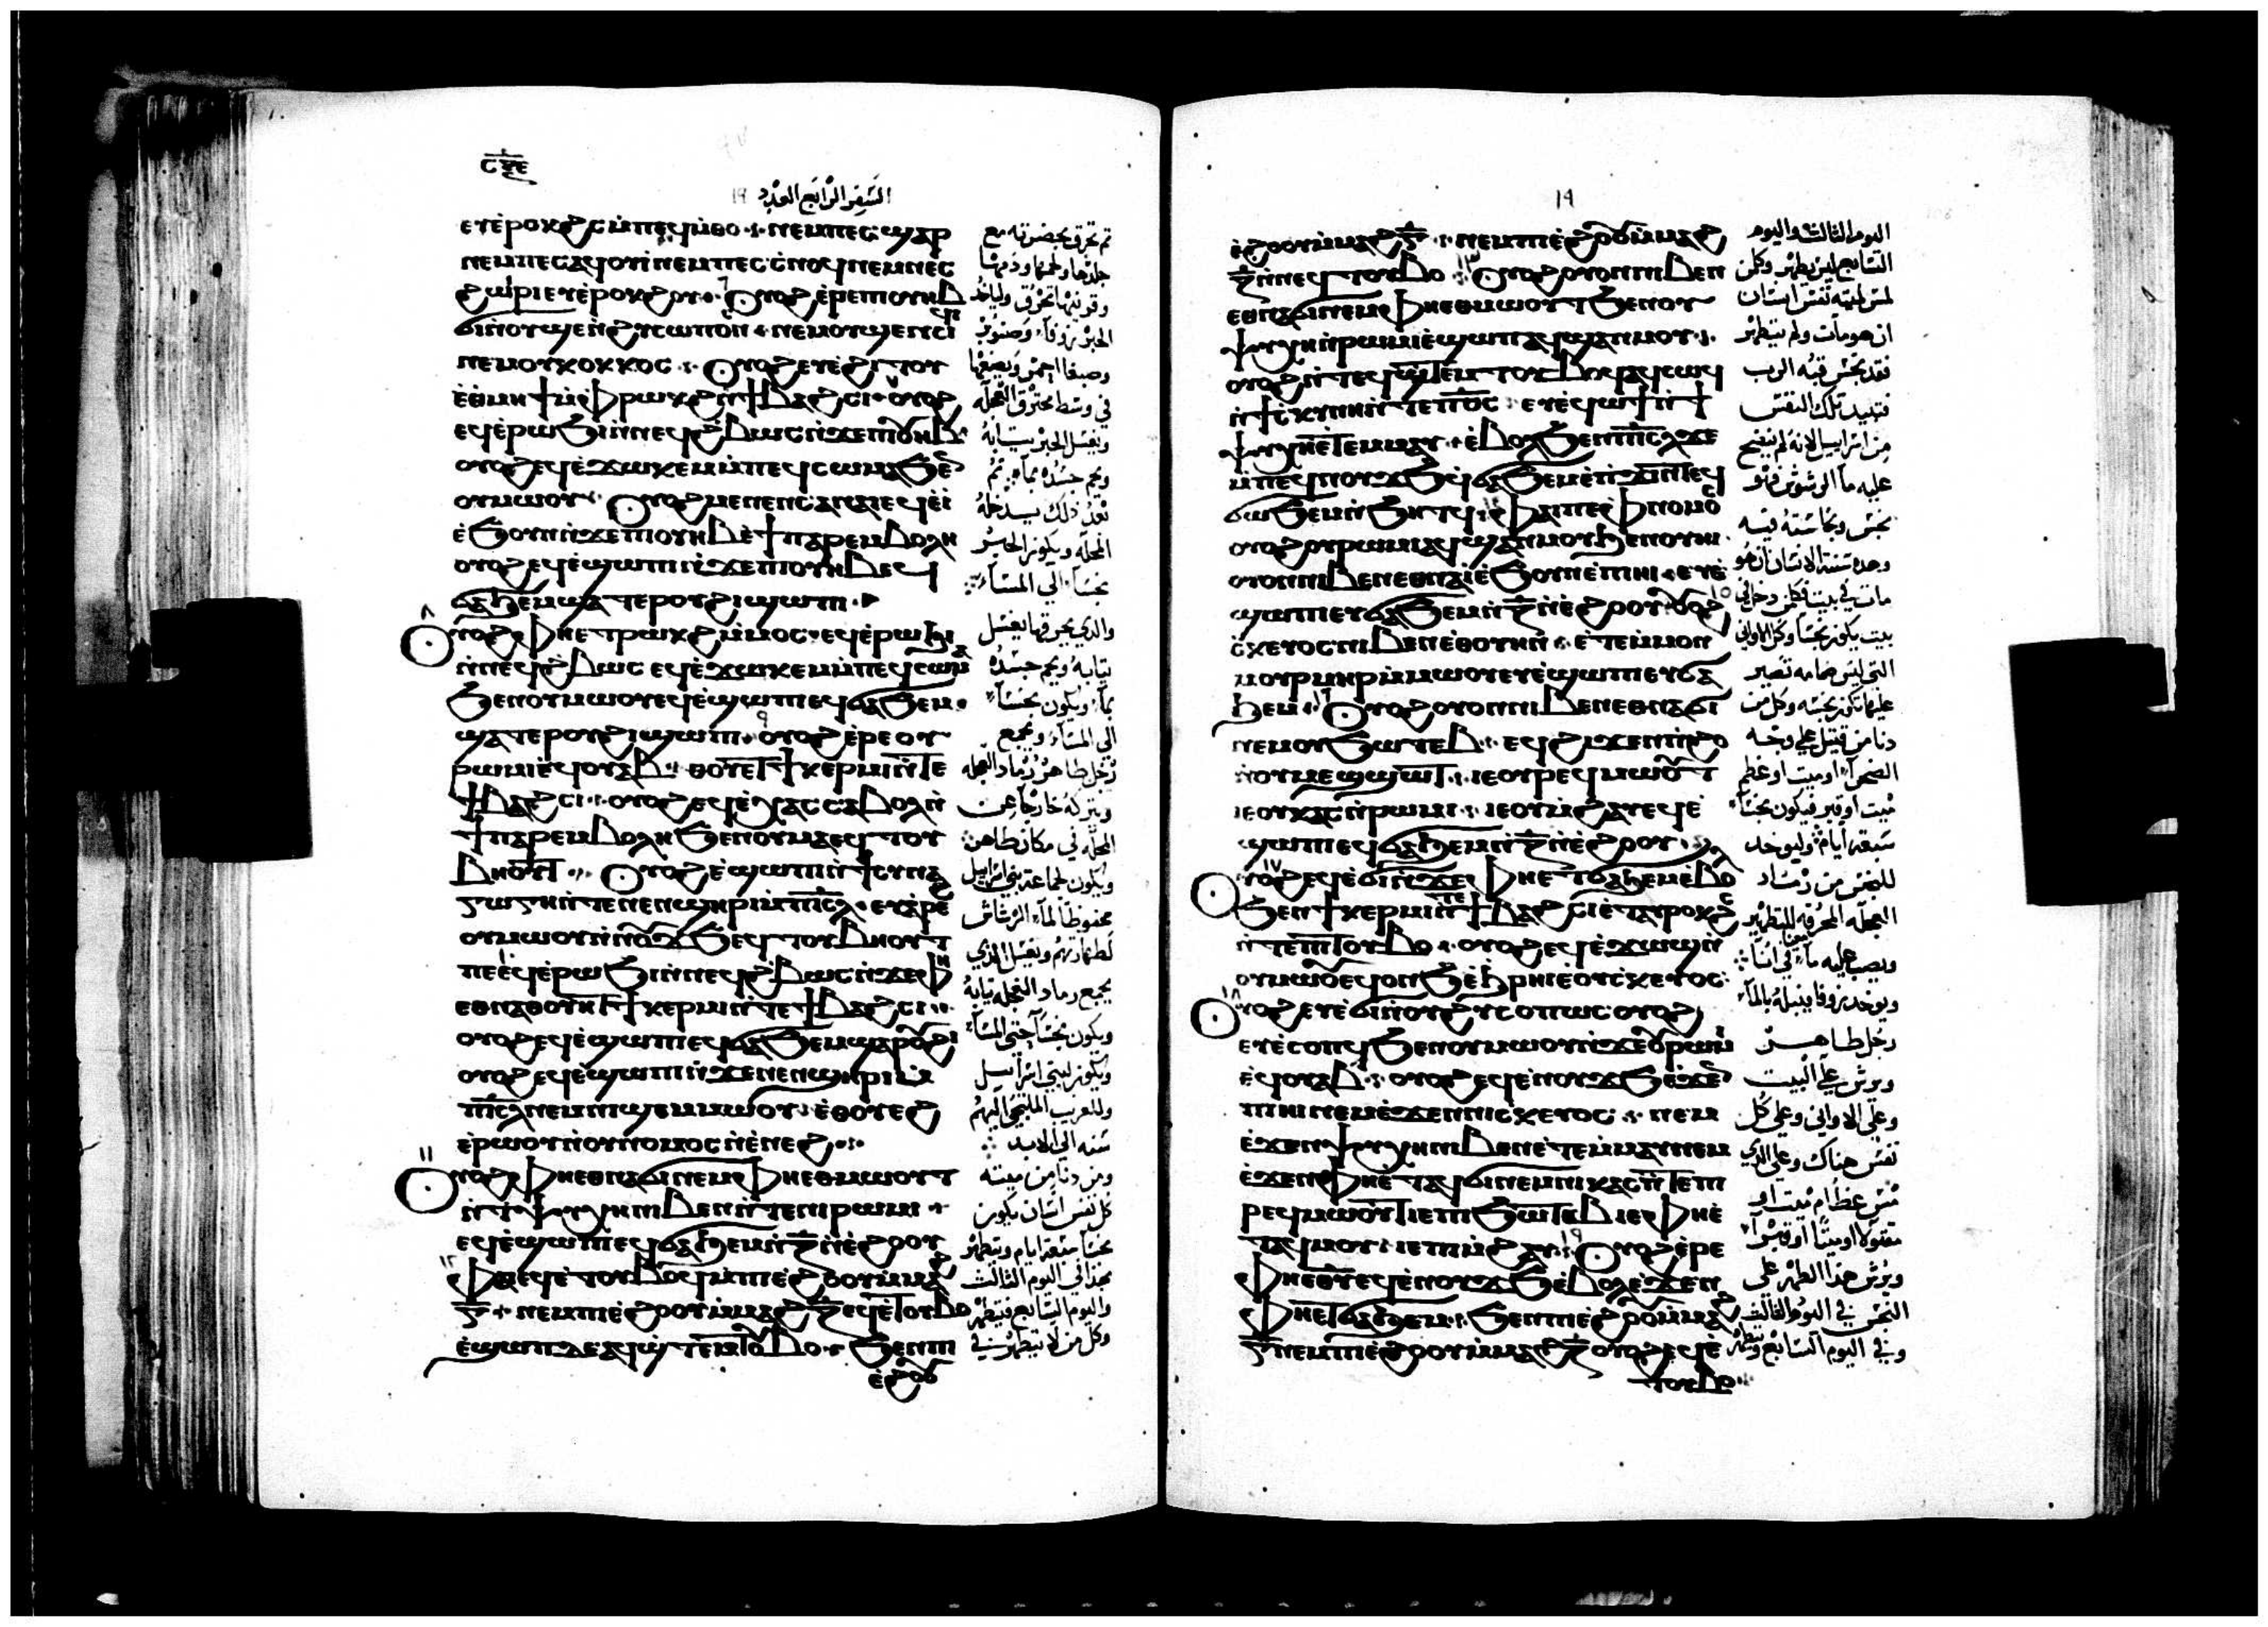 ⲥⲝⲉ
السفر الرابع العدد ١٩
ⲉⲧⲉ̀ⲣⲟⲕϩⲥ ⲙ̀ⲡⲉϥⲙ̀ⲑⲟ ⲛⲉⲙ ⲡⲉⲥϣⲁⲣ
ⲛⲉⲙ ⲛⲉⲥⲁϥⲟⲩⲓ̀ ⲛⲉⲙ ⲡⲉⲥⲥ̀ⲛⲟϥ ⲛⲉⲙ ⲛⲉⲥ
ϩⲱⲓⲣⲓ ⲉⲧⲉ̀ⲣⲟⲕϩⲟⲩ ⲟⲩⲟϩ ⲉ̀ⲣⲉ ⲡⲓⲟⲩⲏⲃ
ϭⲓ ⲛ̀ⲟⲩϣⲉ ⲛ̀ϩⲩⲥⲱⲡⲟⲛ ⲛⲉⲙ ⲟⲩϣⲉ ⲛ̀ⲥⲓϥⲓ
ⲛⲉⲙ ⲟⲩⲕⲟⲕⲕⲟⲥ ⲟⲩⲟϩ ⲉⲧⲉ̀ϩⲓⲧⲟⲩ
ⲉ̀ⲑⲙⲏϯ ⲙ̀ⲫⲣⲱⲕϩ ⲛ̀ϯⲃⲁϩⲥⲓ ⲟⲩⲟϩ
ⲉϥⲉ̀ⲣⲱϧⲓ ⲛ̀ⲛⲉϥϩ̀ⲃⲱⲥ ⲛ̀ϫⲉ ⲡⲓⲟⲩⲏⲃ
ⲟⲩⲟϩ ⲉϥⲉ̀ϫⲱⲕⲉⲙ ⲙ̀ⲡⲉϥⲥⲱⲙⲁ ϧⲉⲛ
ⲟⲩⲙⲱⲟⲩ ⲟⲩⲟϩ ⲙⲉⲛⲉⲛⲥⲁ ⲛⲁⲓ ⲉϥⲉ̀ⲓ̀
ⲉ̀ϧⲟⲩⲛ ⲛ̀ϫⲉ ⲡⲓⲟⲩⲏⲃ ⲉ̀ϯⲡⲁⲣⲉⲙⲃⲟⲗⲏ
ⲟⲩⲟϩ ⲉϥⲉ̀ϣⲱⲡⲓ ⲛ̀ϫⲉ ⲡⲓⲟⲩⲏⲃ ⲉϥ
ϭⲁϧⲉⲙ ϣⲁⲧⲉ ⲣⲟⲩϩⲓ ϣⲱⲡⲓ
٨ ⲟⲩⲟϩ ⲫⲏⲉⲧⲣⲱⲕϩ ⲙ̀ⲙⲟⲥ ⲉϥⲉ̀ⲣⲱϧⲓ
ⲛ̀ⲛⲉϥϩ̀ⲃⲱⲥ ⲉϥⲉ̀ϫⲱⲕⲉⲙ ⲙ̀ⲡⲉϥⲥⲱⲙⲁ
ϧⲉⲛ ⲟⲩⲙⲱⲟⲩ ⲉϥⲉ̀ϣⲱⲡⲓ ⲉϥϭⲁϧⲉⲙ
ϣⲁⲧⲉ ⲣⲟⲩϩⲓ ϣⲱⲡⲓ ٩ ⲟⲩⲟϩ ⲉ̀ⲣⲉ ⲟⲩ
ⲣⲱⲙⲓ ⲉ̀ϥⲟⲩⲁⲃ ⲑⲟⲩⲉⲧ ϯⲕⲉⲣⲙⲓ ⲛ̀ⲧⲉ
ϯⲃⲁϩⲥⲓ ⲟⲩⲟϩ ⲉϥⲉ̀ⲭⲁⲥ ⲥⲁⲃⲟⲗ ⲛ̀
ϯⲡⲁⲣⲉⲙⲃⲟⲗⲏ ϧⲉⲛ ⲟⲩⲙⲁ ⲉϥⲧⲟⲩ
ⲃⲏⲟⲩⲧ ⲟⲩⲟϩ ⲉ̀ϣⲱⲡⲓ ⲛ̀ϯⲥⲩⲛⲁ
ⲅⲱⲅⲏ ⲛ̀ⲧⲉ ⲛⲉⲛϣⲏⲣⲓ ⲙ̀ⲡⲓⲥⲗ ⲉⲩⲁ̀ⲣⲉϩ
ⲟⲩⲙⲱⲟⲩ ⲛ̀ⲛⲟⲩϫϧ ⲉϥⲧⲟⲩⲃⲏⲟⲩⲧ
ⲡⲉ ⲉϥⲉ̀ⲣⲱϧⲓ ⲛ̀ⲛⲉϥϩ̀ⲃⲱⲥ ⲛ̀ϫⲉ ⲫⲏ
ⲉⲑⲛⲁⲑⲟⲩⲏⲧ ϯⲕⲉⲣⲙⲓ ⲛ̀ⲧⲉ ϯⲃⲁϩⲥⲓ
ⲟⲩⲟϩ ⲉϥⲉ̀ϣⲱⲡⲓ ⲉϥϭⲁϧⲉⲙ ϣⲁ ⲣⲟⲩϩⲓ
ⲟⲩⲟϩ ⲉϥⲉ̀ϣⲱⲡⲓ ⲛ̀ϫⲉ ⲛⲉⲛϣⲏⲣⲓ ⲙ̀
ⲡⲓⲥⲗ ⲛⲉⲙ ⲛⲓϣⲉⲙⲙⲱⲟⲩ ⲉ̀ⲑⲟⲩⲉϩ
ⲉ̀ⲣⲱⲟⲩ ⲛ̀ⲟⲩⲛⲟⲙⲟⲥ ⲛ̀ⲉ̀ⲛⲉϩ
١١ ⲟⲩⲟϩ ⲫⲏⲉⲑⲛⲁϭⲓ ⲛⲉⲙ ⲫⲏⲉⲑⲙⲱⲟⲩⲧ
ⲛ̀ⲧⲉ ⲯⲩⲭⲏ ⲛⲓⲃⲉⲛ ⲛ̀ⲧⲉ ⲛⲓⲣⲱⲙⲓ
ⲉϥⲉ̀ϣⲱⲡⲓ ⲉϥϭⲁϧⲉⲙ ⲛ̀ⲍ ⲛ̀ⲉ̀ϩⲟⲟⲩ
١٢ ⲫⲁⲓ ⲉϥⲉ̀ⲧⲟⲩⲃⲟϥ ⲙ̀ⲡⲓⲉ̀ϩⲟⲟⲩ ⲙ̀ⲙⲁϩ
ⲅ ⲛⲉⲙ ⲡⲓⲉ̀ϩⲟⲟⲩ ⲙ̀ⲙⲁϩ ⲍ ⲉϥⲉ̀ⲧⲟⲩⲃⲟ
ⲉ̀ϣⲱⲡ ⲇⲉ ⲁϥϣⲧⲉⲙⲧⲟⲩⲃⲟ ϧⲉⲛ ⲡⲓ
ⲉ̀ϩⲟⲟⲩ
ثم تحرق بحضرته مع
جلدها ولحمها ودمها
وقرنيها تحرق ولياخذ
الحبر زوفا وصنوبر
وصبغا احمر ويضعها
في وسط محترق العجله
ويغسل الحبر ثيابه
ويحم جسده بما ثم
بعد ذلك يدخل
المحله ويكون الحبر
نجسا الى المسا
والذي يحرقها يغسل
ثيابه ويحم جسده
بما ويكون نجسا
الى المسا ويجمع
رجل طاهر رماد العجله
ويتركه خارجا عن
المحله في مكان طاهر
ويكون لجماعه بني اسرايل
محفوظا لما الرشاش
لطهارتهم ويغسل الذي
يجمع رماد العجله ثيابه
ويكون نجسا حتى المسا
ويكون لبني اسراييل
وللغريب الملتجي اليهم
سنه الى الابد
ومن دنا من ميته
كل نفس انسان يكون
نجسا سبعه ايام ويتطهر
هذا في اليوم الثالث
واليوم السابع فيتطهر
وكل من لا يتطهر في
١٩
ⲉ̀ϩⲟⲟⲩ ⲙ̀ⲙⲁϩ ⲅ ⲛⲉⲙ ⲡⲓⲉ̀ϩⲟⲟⲩ ⲙ̀ⲙⲁϩ
ⲍ ⲛ̀ⲛⲉϥⲧⲟⲩⲃⲟ ١٣ ⲟⲩⲟϩ ⲟⲩⲟⲛ ⲛⲓⲃⲉⲛ
ⲉⲑⲛⲁϭⲓ ⲛⲉⲙ ⲫⲏⲉⲑⲙⲱⲟⲩⲧ ϧⲉⲛ ⲟⲩ
ⲯⲩⲭⲏ ⲛ̀ⲣⲱⲙⲓ ⲉ̀ϣⲱⲡ ⲁϥϣⲁⲛⲙⲟⲩ
ⲟⲩⲟϩ ⲛ̀ⲧⲉϥϣⲧⲉⲙⲧⲟⲩⲃⲟ ⲁϥⲥⲱϥ
ⲛ̀ϯⲥⲕⲩⲛⲏ ⲛ̀ⲧⲉ ⲡϭⲥ ⲉⲩⲉ̀ϥⲱϯ ⲛ̀ϯ
ⲯⲩⲭⲏ ⲉ̀ⲧⲉⲙⲙⲁⲩ ⲉ̀ⲃⲟⲗ ϧⲉⲛ ⲡⲓⲥⲗ ϫⲉ
ⲙ̀ⲡⲉϥⲛⲟⲩϫϧ ϥϭⲁϧⲉⲙ ⲉ̀ⲧⲓ ϫⲉ ⲡⲉϥ
ϭⲱϧⲉⲙ ⲛ̀ϧⲏⲧϥ ١٤ ⲫⲁⲓ ⲡⲉ ⲫⲛⲟⲙⲟⲥ
ⲟⲩⲟϩ ⲟⲩⲣⲱⲙⲓ ⲁϥϣⲁⲛⲙⲟⲩ ϧⲉⲛ ⲟⲩⲏⲓ
ⲟⲩⲟⲛ ⲛⲓⲃⲉⲛ ⲉⲑⲛⲁⲓ̀ ⲉ̀ϧⲟⲩⲛ ⲉ̀ⲡⲓⲏⲓ ⲉⲩⲉ̀
ϣⲱⲡⲓ ⲉⲩϭⲁϧⲉⲙ ⲛ̀ⲍ ⲛ̀ⲉ̀ϩⲟⲟⲩ ١٥ ⲟⲩⲟϩ
ⲥ̀ⲕⲉⲩⲟⲥ ⲛⲓⲃⲉⲛ ⲉ̀ⲑⲟⲩⲏⲛ ⲉ̀ⲧⲉ ⲙ̀ⲙⲟⲛ
ⲙⲟⲩⲣ ⲙⲏⲣ ⲙ̀ⲙⲱⲟⲩ ⲉⲩⲉ̀ϣⲱⲡⲓ ⲉⲩϭⲁ
ϧⲉⲙ ١٦ ⲟⲩⲟϩ ⲟⲩⲟⲛ ⲛⲓⲃⲉⲛ ⲉⲑⲛⲁϭⲓ
ⲛⲉⲙ ⲟⲩϧⲱⲧⲉⲃ ⲉϥϩⲓϫⲉⲛ ⲡ̀ϩⲟ
ⲛ̀ⲟⲩⲙⲉϣϣⲱⲧ ⲓⲉ ⲟⲩⲣⲉϥⲙⲱⲟⲩⲧ
ⲓⲉ ⲟⲩⲕⲁⲥ ⲛ̀ⲣⲱⲙⲓ ⲓⲉ ⲟⲩⲙ̀ϩⲁⲩ ⲉϥⲉ̀
ϣⲱⲡⲓ ⲉϥϭⲁϧⲉⲙ ⲛ̀ⲍ ⲛ̀ⲉ̀ϩⲟⲟⲩ
١٧ ⲟⲩⲟϩ ⲉϥⲉ̀ϭⲓ ⲛ̀ϫⲉ ⲫⲏⲉⲧϭⲁϧⲉⲙ ⲉ̀ⲃⲟⲗ
ϧⲉⲛ ϯⲕⲉⲣⲙⲓ ⲛ̀ⲧⲉ ϯⲃⲁϩⲥⲓ ⲉ̀ⲧⲁⲩⲣⲟⲕϩⲥ
ⲛ̀ⲧⲉ ⲡⲓⲧⲟⲩⲃⲟ ⲟⲩⲟϩ ⲉϥⲉ̀ϫⲱϣ ⲛ̀
ⲟⲩⲙⲱⲟⲩ ⲉϥⲟⲛϧ ⲉ̀ϧⲣⲏⲓ ⲉ̀ⲟⲩⲥ̀ⲕⲉⲩⲟⲥ
١٨ ⲟⲩⲟϩ ⲉⲩⲉ̀ϭⲓ ⲛ̀ⲟⲩϩⲩⲥⲟⲡⲱⲥ ⲟⲩⲟϩ
ⲉⲩⲉ̀ⲥⲟⲡϥ ϧⲉⲛ ⲟⲩⲙⲱⲟⲩ ⲛ̀ϫⲉ ⲟⲩⲣⲱⲙⲓ
ⲉ̀ϥⲟⲩⲁⲃ ⲟⲩⲟϩ ⲉϥⲉ̀ⲛⲟⲩϫϧ ⲉ̀ϫⲉⲛ
ⲡⲓⲏⲓ ⲛⲉⲙ ⲉ̀ϫⲉⲛ ⲛⲓⲥⲕⲉⲩⲟⲥ ⲛⲉⲙ
ⲉ̀ϫⲉⲛ ⲯⲩⲭⲏ ⲛⲓⲃⲉⲛ ⲉ̀ⲧⲉⲙⲙⲁⲩ ⲛⲉⲙ
ⲉ̀ϫⲉⲛ ⲫⲏⲉⲧⲁϥϭⲓ ⲛⲉⲙ ⲛⲓⲕⲁⲥ ⲛ̀ⲧⲉ ⲡⲓ
ⲣⲉϥⲙⲱⲟⲩⲧ ⲓⲉ ⲡⲓϧⲱⲧⲉⲃ ⲓⲉ ⲫⲏⲉ̀
ⲧⲁϥⲙⲟⲩ ⲓⲉ ⲡⲓⲙ̀ϩⲁⲩ ١٩ ⲟⲩⲟϩ ⲉ̀ⲣⲉ
ⲫⲏⲉⲑⲩ ⲉϥⲉ̀ⲛⲟⲩϫϧ ⲉ̀ⲃⲟⲗ ⲉ̀ϫⲉⲛ
ⲫⲏⲉⲧϭⲁϧⲉⲙ ϧⲉⲛ ⲡⲓⲉ̀ϩⲟⲟⲩ ⲙ̀ⲙⲁϩ
ⲅ ⲛⲉⲙ ⲡⲓⲉ̀ϩⲟⲟⲩ ⲙ̀ⲙⲁϩ ⲍ ⲟⲩⲟϩ ⲉϥⲉ̀
ⲧⲟⲩⲃⲟ
اليوم الثالث واليوم
السابع ليس يطهر وكل من
لمس الميته نفس انسان
ان هو مات ولم يتطهر
فقد نجس قبه الرب
فتبيد تلك النفس
من اسراييل لانه لم ينضح
عليه ما الرشوش فهو
نجس ونجاسته فيه
وهذه سنة الانسان ان هو
مات في بيت فكل من دخل الى
بيت يكون نجسا وكل الاواني
التي ليس ضمامه تصير
عليها تكون نجسه وكل من
دنا من قتيل على وجه
الصحرا او ميت او عظم
ميت او قبر فيكون نجسا
سبعه ايام وليوخذ
للنجس من رماد
العجله المحرقه للتطهير
ويصب عليه ما في انا
ويوخذ زوفا فيبله بالما
رجل طاهر
ويرش على البيت
وعلى الاواني وعلى كل
نفس هناك وعلى الذي
مس عظام ميت او
مقتولا او ميتا او قبرا
ويرش هذا الطهر على
النجس في اليوم الثالث
وفي اليوم السابع ويطهر